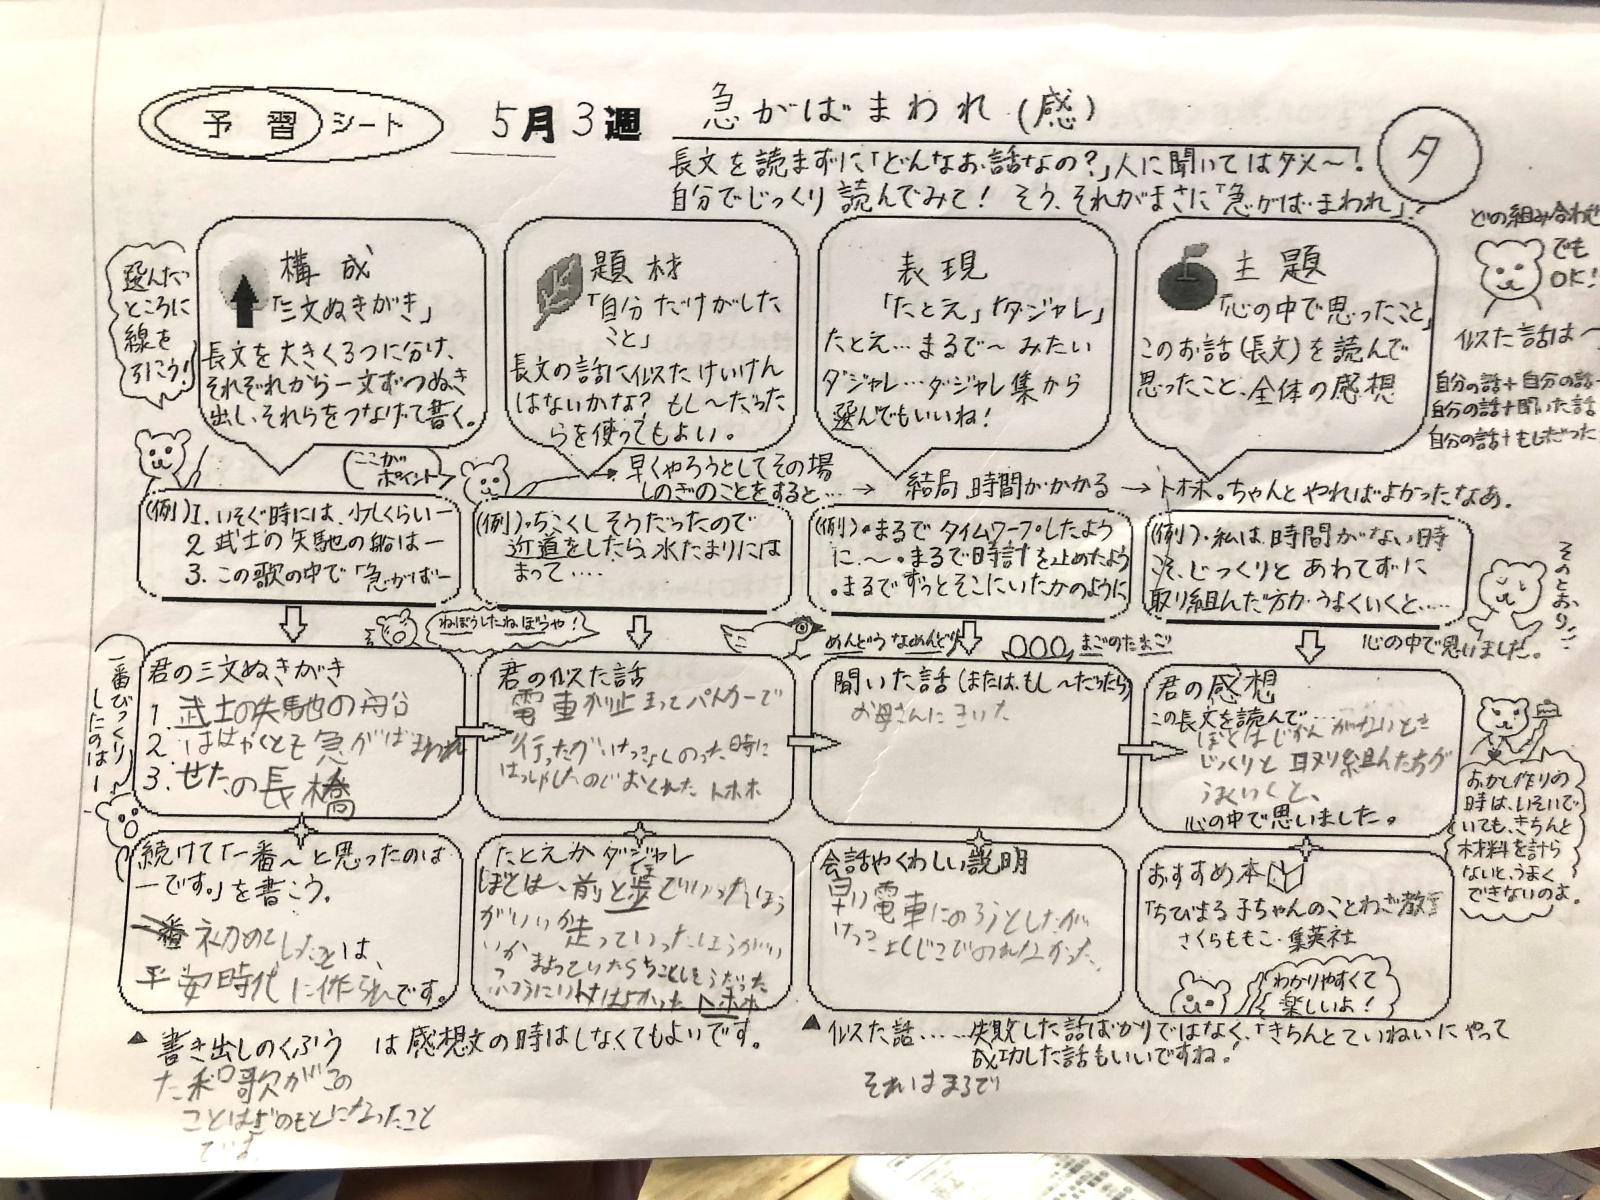 予習シート
5月3週
急がばまわれ(感)
夕
長文を読まずに「どんなお話なの?」人に聞いてはダメ〜!
自分でじっくり読んでみて! そう、それがまさに「急がば・まわれ」!
選んだ
ところに
線を
引こう!
構成
「三文ぬきがき」
長文を大きく3つに分け、
それぞれから一文ずつぬき
出し、それらをつなげて書く。
題材
「自分だけがした
こと」
長文の話に似たけいけん
はないかな? もし〜だった
らを使ってもよい。
表現
「たとえ」「ダジャレ」
たとえ…まるで〜みたい
ダジャレ…ダジャレ集から
選んでもいいね!
主題
「心の中で思ったこと」
このお話(長文)を読んで
思ったこと、全体の感想
どの組み合わせ
でも
OK!
似た話は〜
自分の話+自分の話
自分の話+聞いた話
自分の話+もしだった
ここが
ポイント
早くやろうとしてその場
しのぎのことをすると…→ 結局、時間がかかる → トホホ。ちゃんとやればよかったなあ。
(例)1. いそぐ時には、少しくらいー
2 武士の矢馳の船はー
3. この歌の中で「急がばー
(例)・ちこくしそうだったので
近道をしたら、水たまりには
まって‥‥
(例)・まるでタイムワープしたよう
に、〜。・まるで時計を止めたよう
・まるでずっとそこにいたかのように
(例)・私は、時間がない時
こそ、じっくりとあわてずに
取り組んだ方が・うまくいくと、……
心の中で思いました。
そのとおり!!
ねぼうしたねぼうや!
めんどうなめんどり
まごのたまご
一番びっくり
したのはー
君の三文ぬきがき
1. 武士の矢馳の船
2. はやくとも急がばまわれ
3. せたの長橋
君の似た話
電車が止まってパトカーで
行ったがけっきょくのった時に
はっしゃしたのでおくれた トホホ
聞いた話(または、もし〜だったら)
お母さんにきいた
君の感想
この長文を読んで、
ぼくはじかんがないとき
じっくりと取り組んだ方が
うまくいくと、
心の中で思いました。
おかし作りの
時は、いそいで
いても、きちんと
材料を計ら
ないと、うまく
できないのよ。
続けて「一番〜と思ったのは
ーです。」を書こう。
初めてしたことは、
平安時代に作られです。
たとえかダジャレ
会話やくわしい説明
早い電車にのろうとしたが
おすすめ本
「ちびまる子ちゃんのことわざ教室」
さくらももこ・集英社
わかりやすくて
楽しいよ!
▲書き出しのくふう は感想文の時はしなくてもよいです。
▲似た話……失敗した話ばかりではなく、「きちんとていねいにやって
成功した話もいいですね。」
た和歌がこの
ことばのもとになったこと
です。
それはまるで